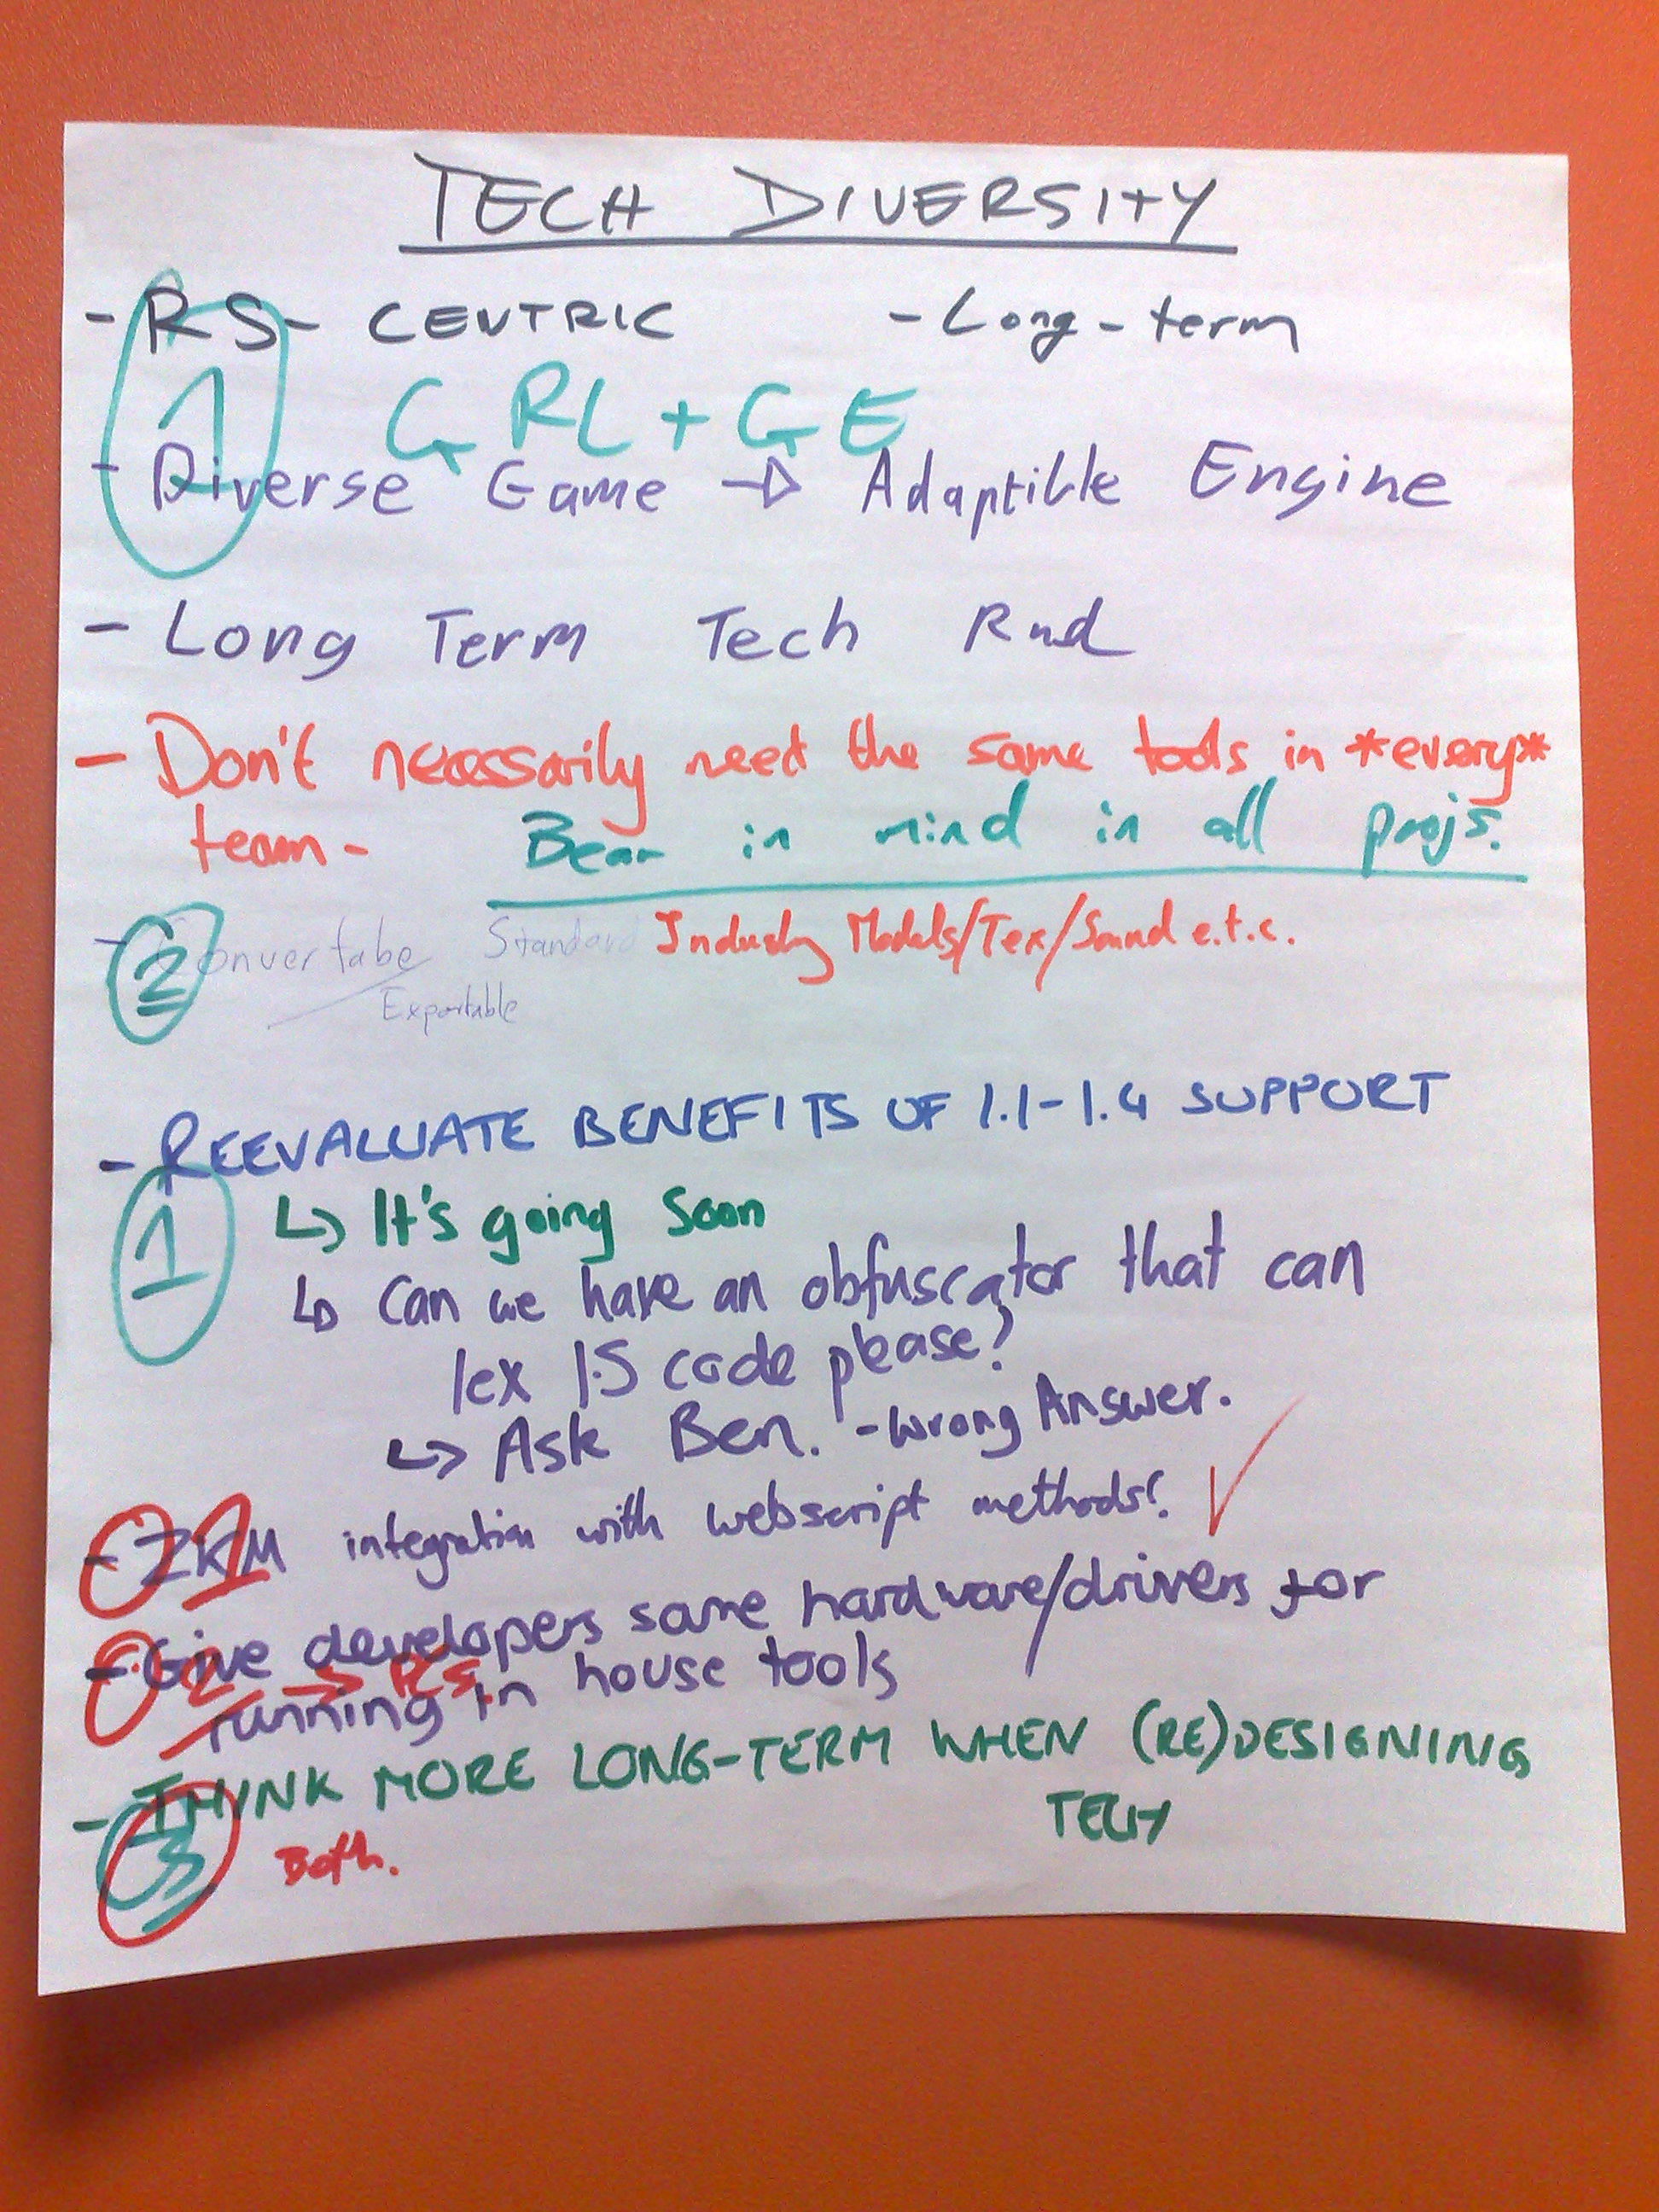 TECH DIVERSITY
- RS - CENTRIC - Long-term
1 GRL + GE
- Diverse Game → Adaptible Engine
- Long Term Tech Rnd
- Don't necessarily need the same tools in *every*
team - Bear in mind in all projs.
2 - Convertabe Standard Industry Models/Tex/Sound e.t.c.
Exportable
- REEVALUATE BENEFITS OF 1.1-1.4 SUPPORT
1 ↳ It's going soon
↳ Can we have an obfuscator that can
lex 1.5 code please?
↳ Ask Ben. - Wrong Answer.
- ZKM integration with webscript methods? ✓
- Give developers same hardware/drivers for
running in house tools
- THINK MORE LONG-TERM WHEN (RE)DESIGNING
TECH
3 Both.